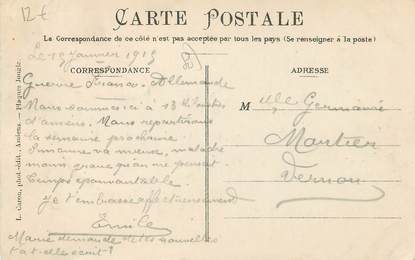 12 €
CARTE POSTALE
La Correspondance de ce côté n'est pas acceptée par tous les pays (Se renseigner à la poste)
Le 19 Janvier 1915
CORRESPONDANCE
ADRESSE
Guerre Franco-Allemande
Nous sommes ici à 13 Kil
d'amiens. Nous repartirons
la semaine prochaine.
Simonne va mieux, maladie
moins grave qu'on ne pensait
Temps épouvantable.
Je t'embrasse affectueusement
Emile
Marie demande de tes nouvelles
t'a t-elle écrit ?
M elle Germaine
Mortier
Vernon
L. Caron, phot-édit., Amiens. — Plaques Jougla